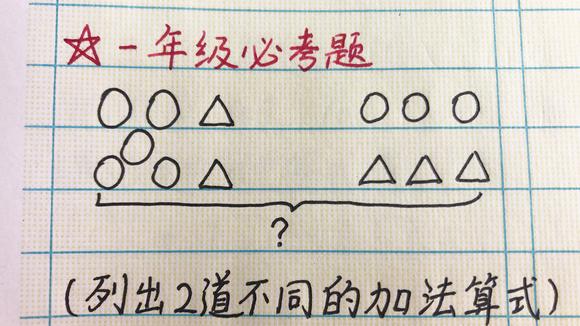 ☆一年级必考题
?
(列出2道不同的加法算式)